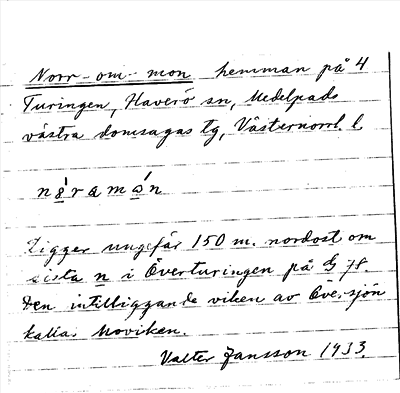 Norr-om-mon hemman på 4
Turingen, Haverö sn, Medelpads
västra domsagas tg, Västernorrl. l.
Ligger ungefär 150 m. nordost om
sista n i Överturingen på G 78.
Den intilliggande viken av Översjön
kallas Moviken.
Valter Jansson 1933.